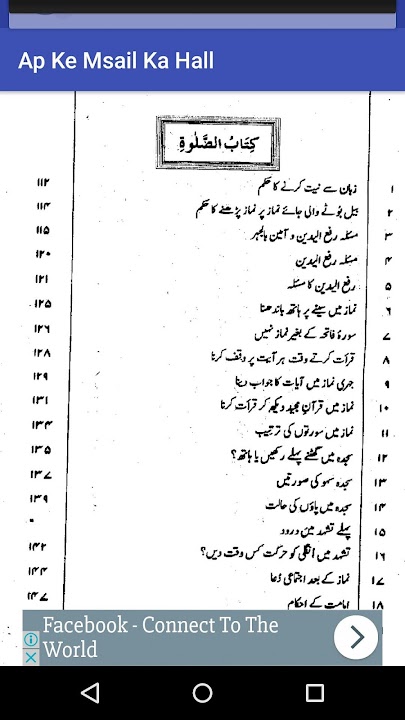 Ap Ke Msail Ka Hall
کِتَابُ الصَّلٰوۃِ
۱ زبان سے نیت کرنے کا حکم ۱۱۲
۲ بیل بُوٹے والی جائے نماز پر نماز پڑھنے کا حکم ۱۱۴
۳ مسئلہ رفع الیدین و آمین بالجہر ۱۱۵
۴ مسئلہ رفع الیدین ۱۲۰
۵ رفع الیدین کا مسئلہ ۱۲۱
۶ نماز میں سینے پر ہاتھ باندھنا ۱۲۵
۷ سورۂ فاتحہ کے بغیر نماز نہیں ۱۲۶
۸ قرأت کرتے وقت ہر آیت پر وقف کرنا ۱۲۸
۹ جہری نماز میں آیات کا جواب دینا ۱۲۹
۱۰ نماز میں قرآنِ مجید دیکھ کر قرأت کرنا ۱۳۱
۱۱ نماز میں سورتوں کی ترتیب ۱۳۴
۱۲ سجدہ میں گھٹنے پہلے رکھیں یا ہاتھ؟ ۱۳۵
۱۳ سجدہ سہو کی صورتیں ۱۳۷
۱۴ سجدہ میں پاؤں کی حالت ۱۳۹
۱۵ پہلے تشہد میں درود "
۱۶ تشہد میں اُنگلی کو حرکت کس وقت دیں؟ ۱۴۲
۱۷ نماز کے بعد اجتماعی دُعا ۱۴۴
۱۸ امامت کے احکام ۱۴۷
Facebook - Connect To The
World